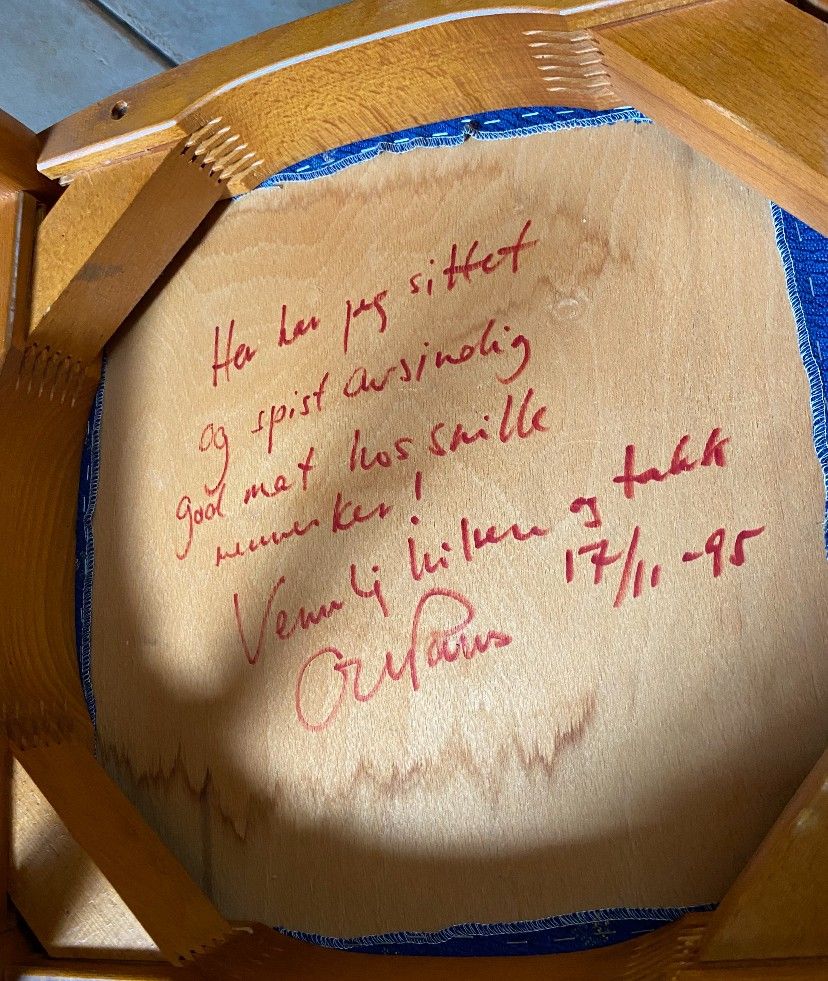 Her har jeg sittet
og spist avsindig
god mat hos snille
mennesker!
Vennlig hilsen og takk
17/11-95